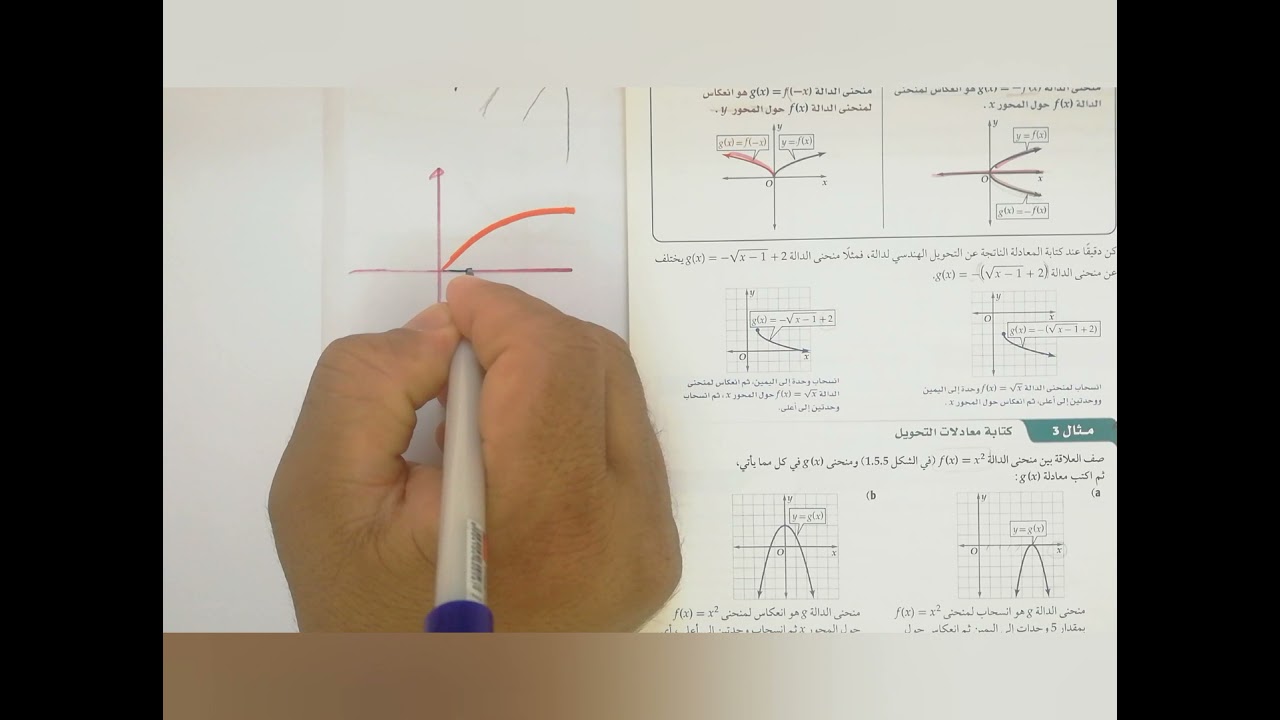 منحنى الدالة g(x) = −f(x) هو انعكاس لمنحنى
الدالة f(x) حول المحور x .
y
y = f(x)
O
x
g(x) = −f(x)
منحنى الدالة g(x) = f(−x) هو انعكاس
لمنحنى الدالة f(x) حول المحور y .
y
g(x) = f(−x)
y = f(x)
O
x
كن دقيقًا عند كتابة المعادلة الناتجة عن التحويل الهندسي لدالة، فمثلًا منحنى الدالة g(x) = −√(x − 1) + 2 يختلف
عن منحنى الدالة g(x) = −(√(x − 1) + 2).
y
O
x
g(x) = −(√(x − 1) + 2)
انسحاب لمنحنى الدالة f(x) = √x وحدة إلى اليمين
ووحدتين إلى أعلى، ثم انعكاس حول المحور x .
y
g(x) = −√(x − 1) + 2
O
x
انسحاب وحدة إلى اليمين، ثم انعكاس لمنحنى
الدالة f(x) = √x حول المحور x ، ثم انسحاب
وحدتين إلى أعلى.
مثال 3
كتابة معادلات التحويل
صف العلاقة بين منحنى الدالة f(x) = x² (في الشكل 1.5.5) ومنحنى g(x) في كل مما يأتي،
ثم اكتب معادلة g(x):
(a
y
y = g(x)
O
x
(b
y
y = g(x)
O
x
منحنى الدالة g هو انسحاب لمنحنى f(x) = x²
بمقدار 5 وحدات إلى اليمين ثم انعكاس حول
منحنى الدالة g هو انعكاس لمنحنى f(x) = x²
حول المحور x ثم انسحاب وحدتين إلى أعلى، أي